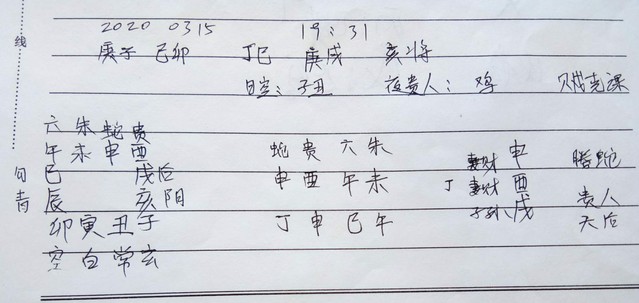 2020 0315 19:31
线 庚子 己卯 丁巳 庚戌 亥将
日空:子丑 夜贵人:鸡 贼克课
六朱蛇贵
午未申酉 蛇贵六朱 妻财 申 腾蛇
勾 巳 戌后 申酉午未 丁 妻财 酉 贵人
青 辰 亥阴 子孙 戌 天后
卯寅丑子 丁申巳午
空白常玄